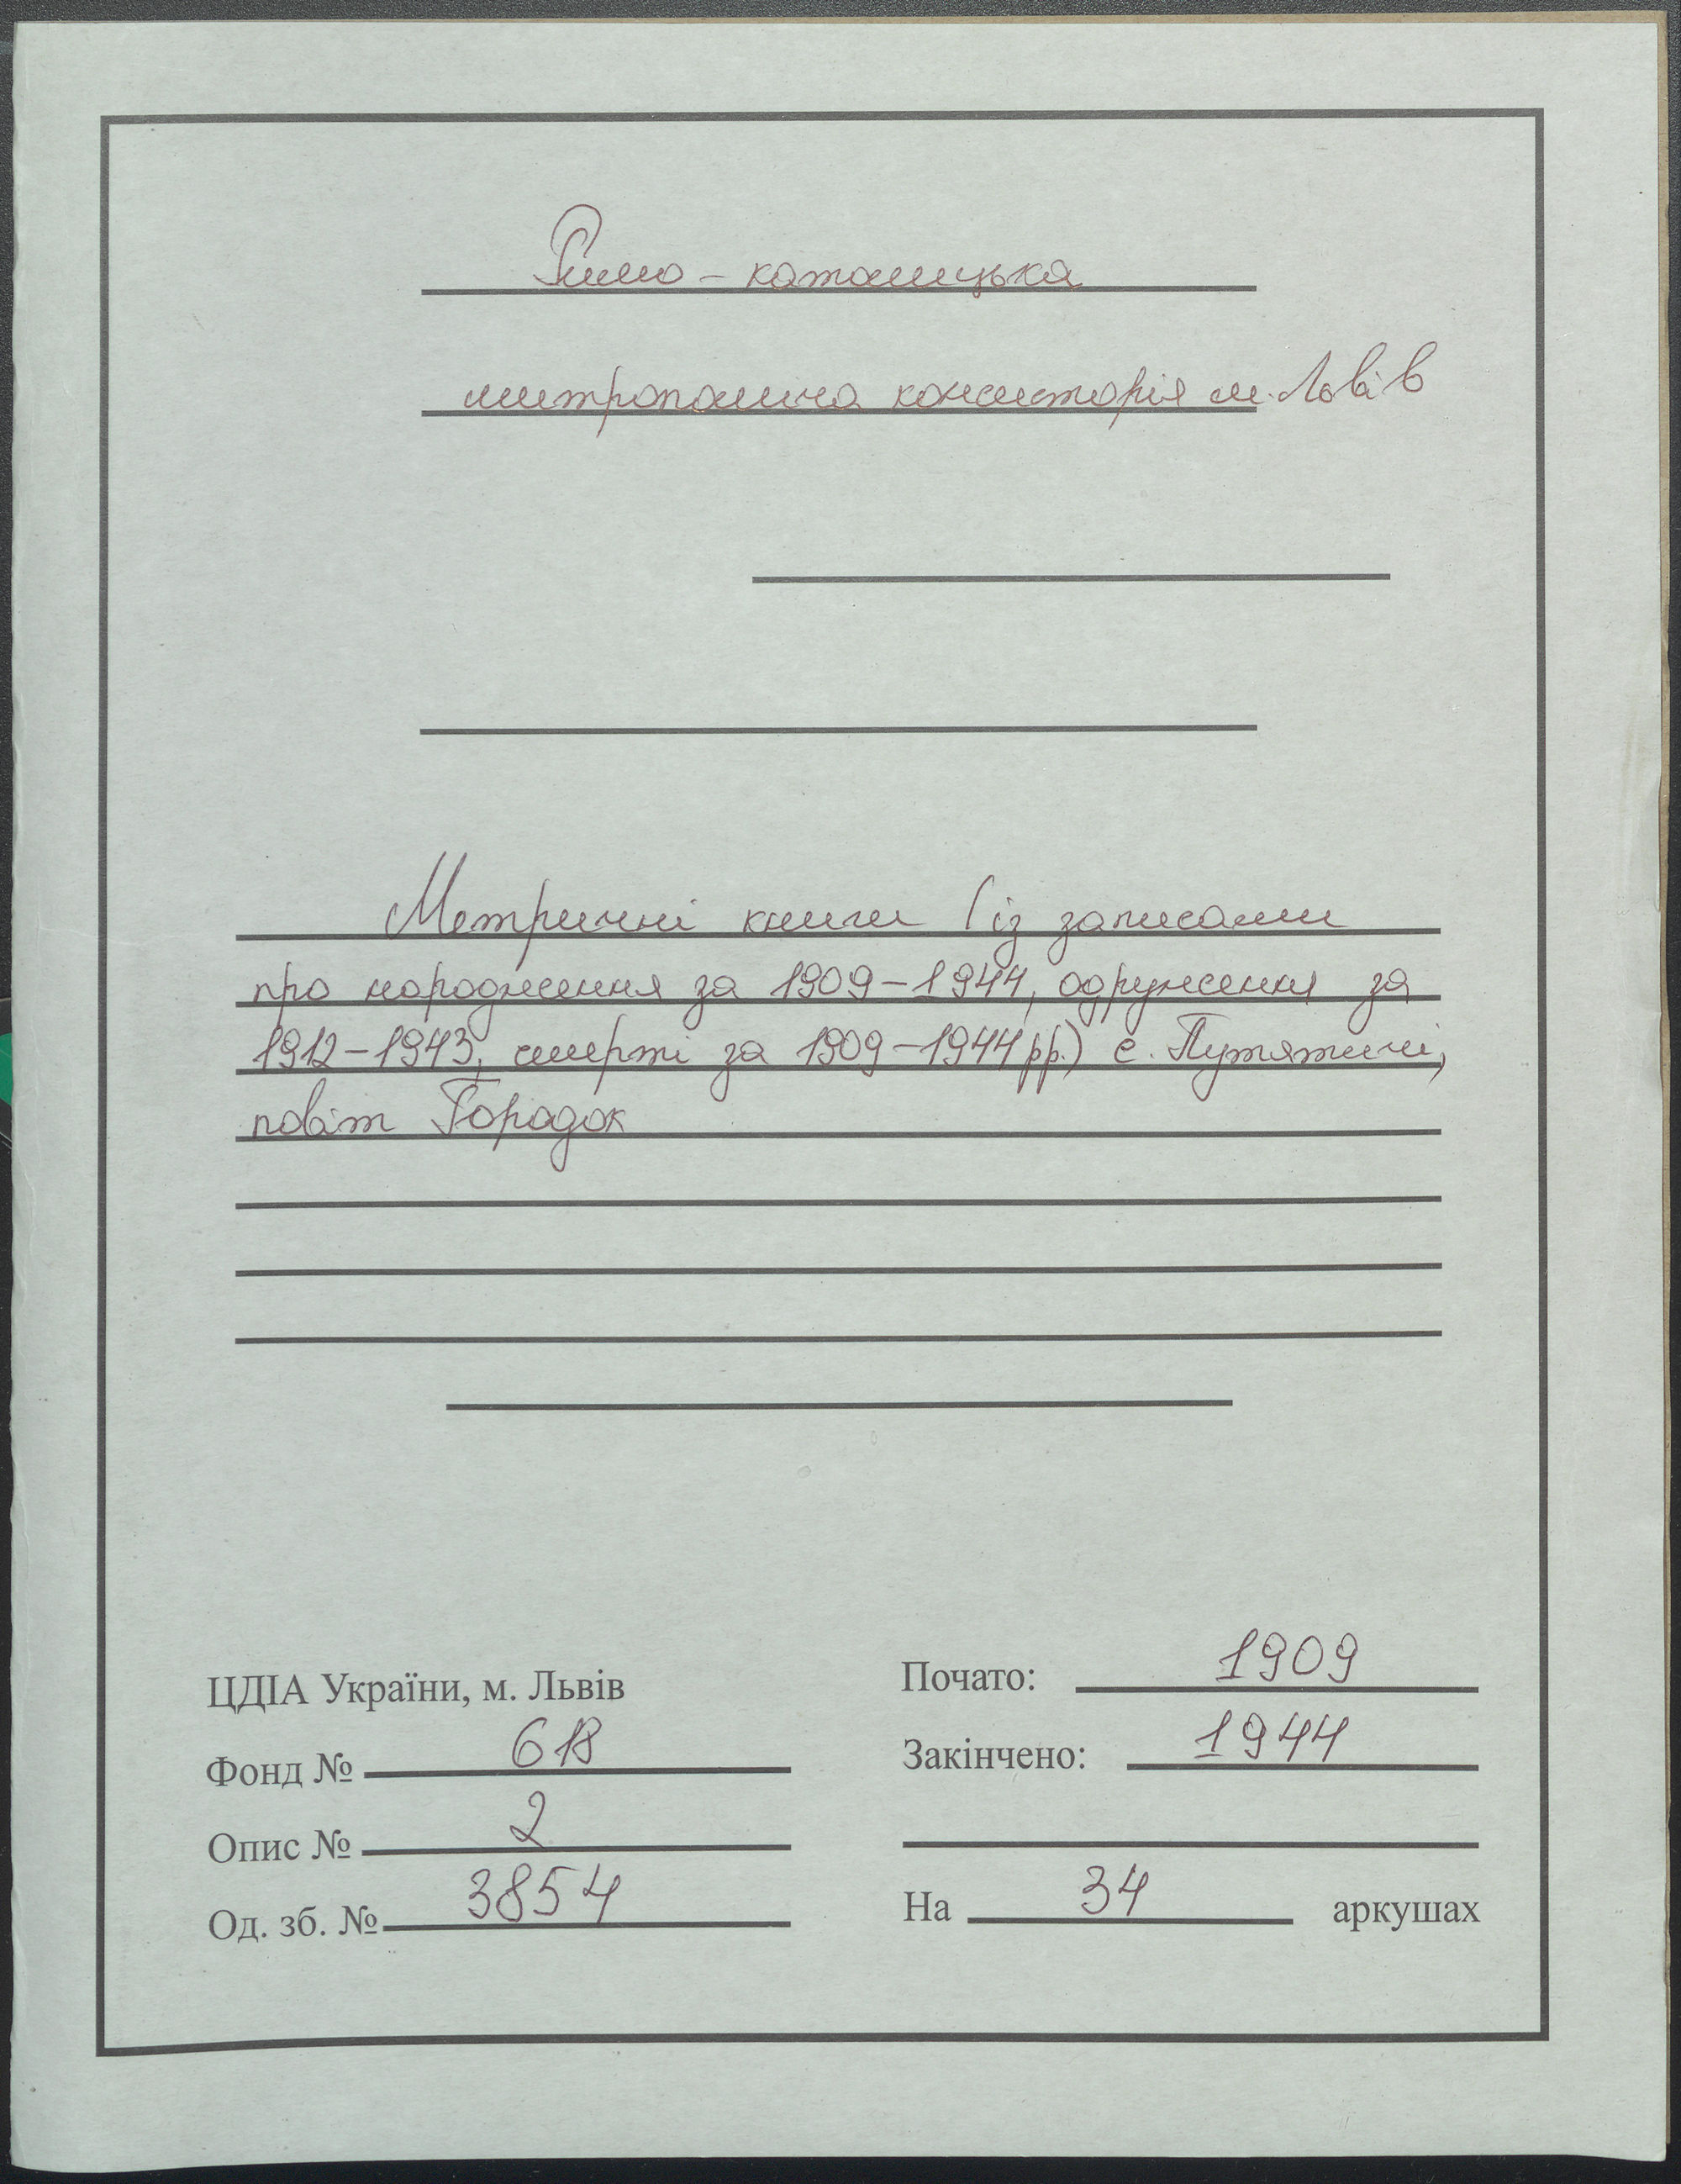 Римо - католицька
митрополича консисторія м. Львів
Метричні книги (із записами
про народження за 1909-1944, одруження за
1912-1943, смерті за 1909-1944 рр.) с. Путятичі,
повіт Городок
ЦДІА України, м. Львів
Фонд № 618
Опис № 2
Од. зб. № 3854
Почато: 1909
Закінчено: 1944
На 34 аркушах